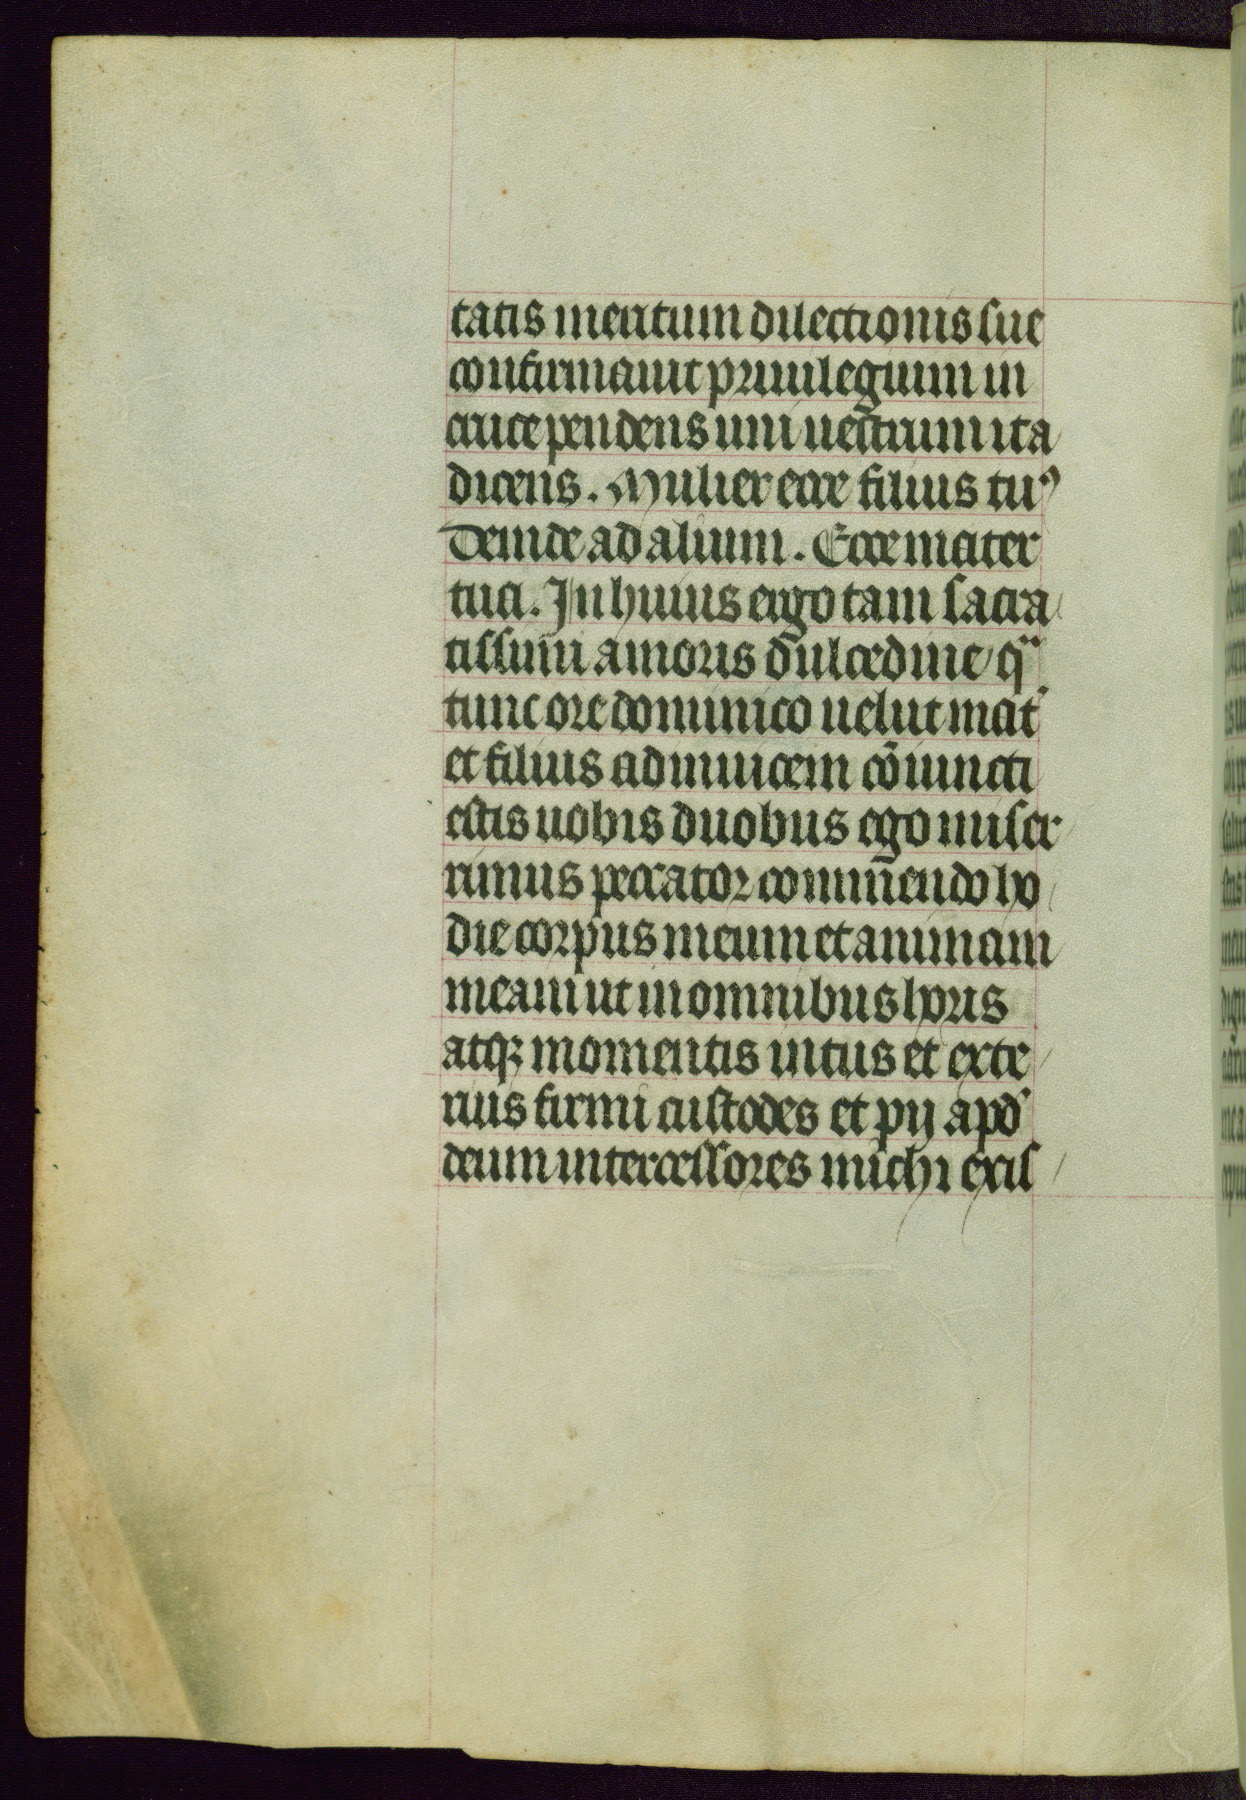 tatis meritum dilectionis sue
confirmauit priuilegium in
cruce pendens uni uestrum ita
dicens. Mulier ecce filius tuꝰ
Deinde ad alium. Ecce mater
tua. In huius ergo tam sacra
tissimi amoris dulcedine q̈
tunc ore dominico uelut mat᷑
et filius ad inuicem cōiuncti
estis uobis duobus ego miser
rimus peccator commēndo ho
die corpus meum et animam
meam ut in omnibus horis
atqꝫ momentis intus et exte
rius firmi custodes et pij apd᷑
deum intercessores michi exis